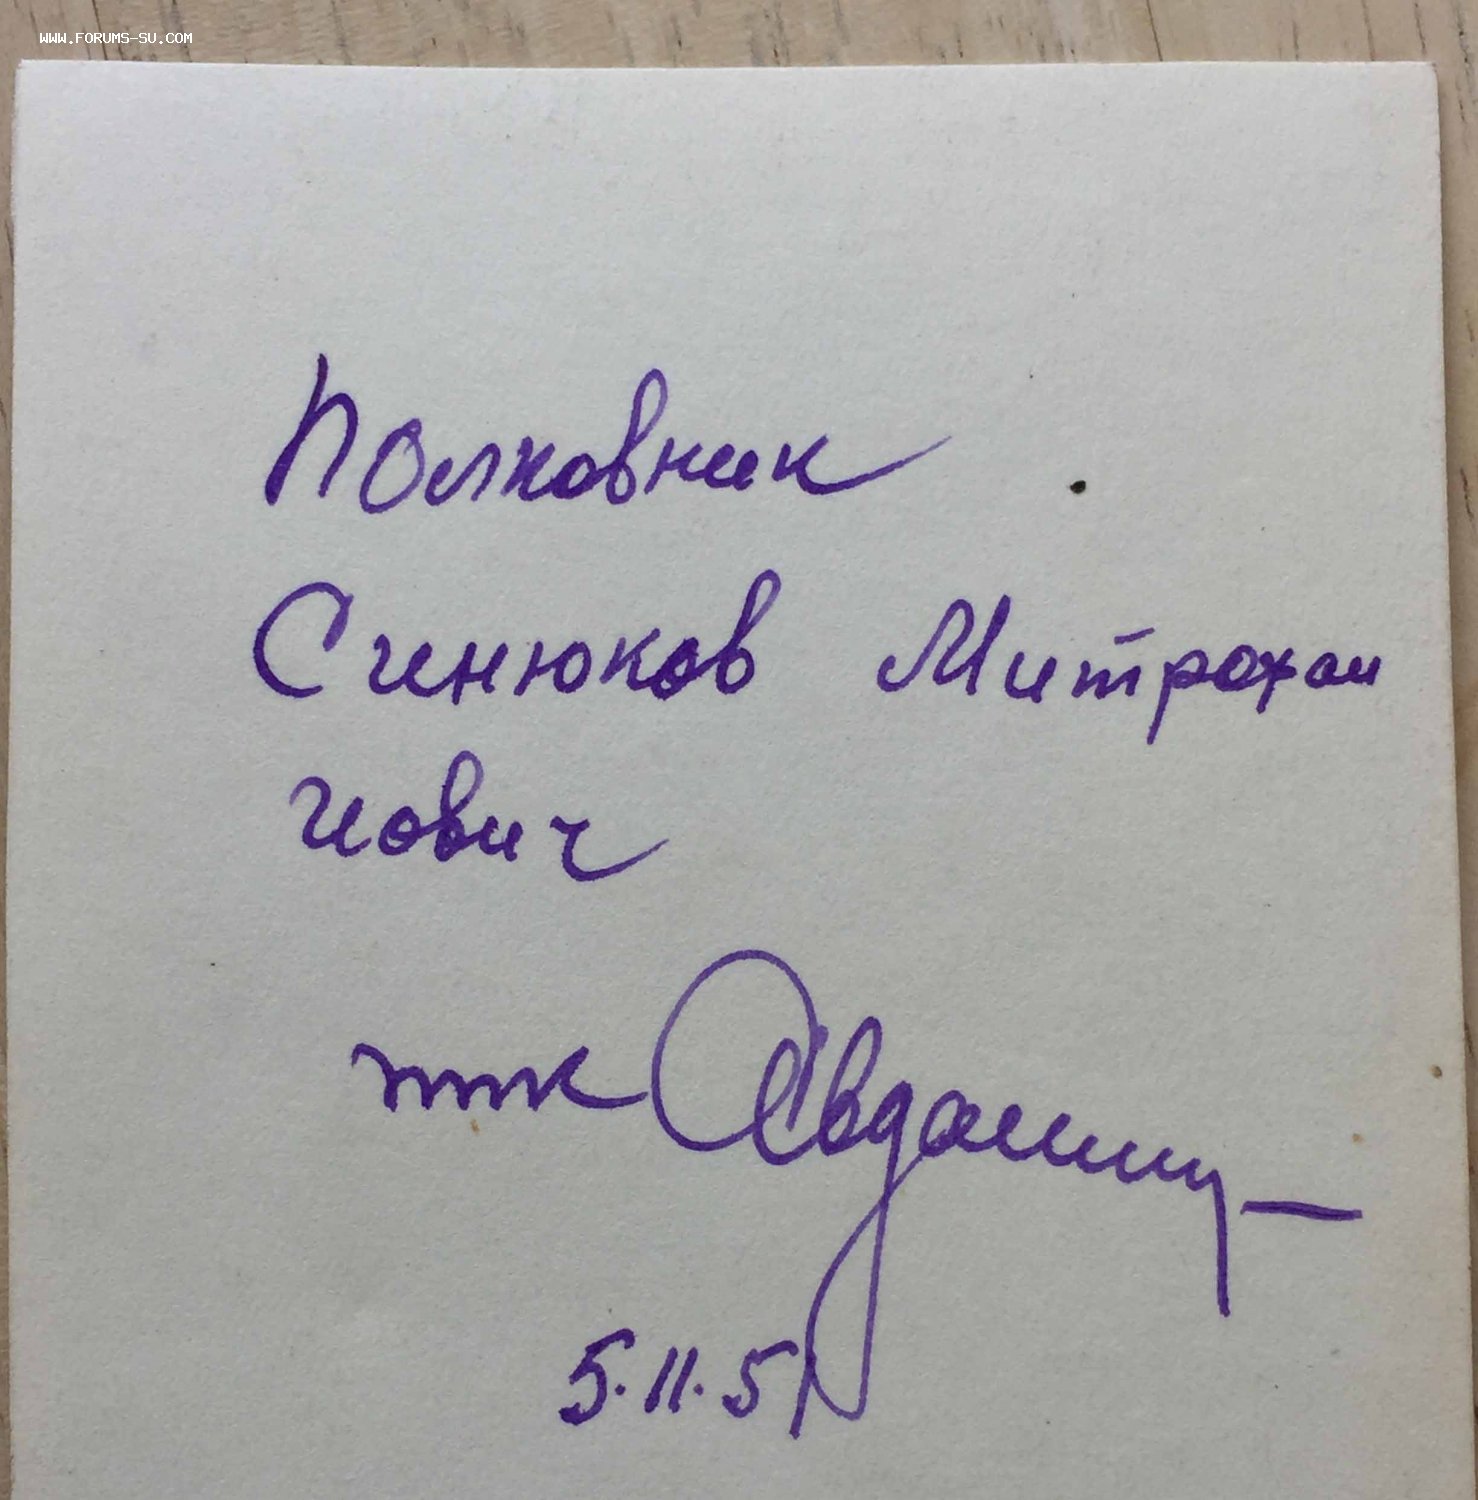 WWW.FORUMS-SU.COM
Полковник
Синюков Митрофан
Иович
ппк
5.11.51